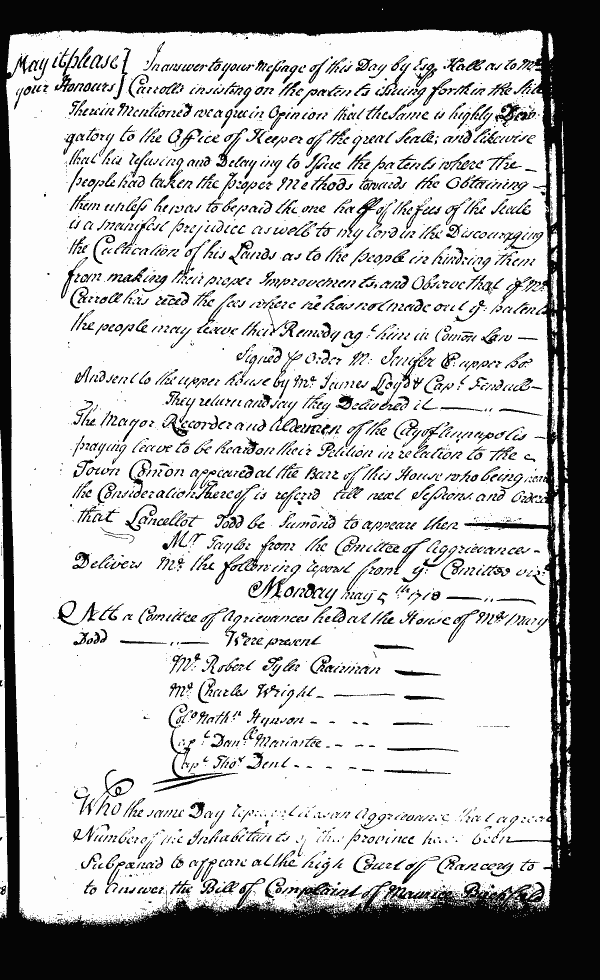 May it please } In answer to your Message of this Day by Esq. Hall as to Mr
your Honours } Carrolls insisting on the patents issuing forth in the stile
Therein Mentioned we agree in Opinion that the same is highly Dero
gatory to the Office of Keeper of the great Seale; and likewise
that his refusing and Delaying to Issue the patents where the
people had taken the proper Methods towards the Obtaining
them unless he was to be paid the one half of the fees of the Seale
is a manifest prejudice as well to my lord in the Discouraging
the Cultivation of his Lands as to the people in hindring them
from making their proper Improvements, and Observe that if Mr
Carroll has reced the fees where he has not made out ye patents
the people may leave their Remedy agt him in Comon Law
Signed p Order M: Jenifer Cl. upper ho
And sent to the upper house by Mr James Lloyd & Capt Fendall
They return and say they Delivered it
The Mayor Recorder and Aldermen of the City of Annapolis
praying leave to be heard on their Petition in relation to the
Town Comon appeared at the Barr of this House who being
the Consideration thereof is referd till next Sessions and Ordered
that Lancellot Todd be Sumond to appeare then
Mr Taylor from the Comittee of Aggrievances
Delivers Mr the following report from ye Comittee vizt
Monday may 5th 1718
Att a Comittee of Agrievances held at the House of Mrs Mary
Dodd Were present
Mr Robert Tyler Chairman
Mr Charles Wright
Colo Nathll Hynson
Capt Danll Mariartee
Capt Thos Dent
Who the same Day represent it as an Aggrievance that a great
Number of the Inhabitants of this province have been
Subpanad to appeare at the high Court of Chancery to
to answer the Bill of Complaint of Maurice Birchfield